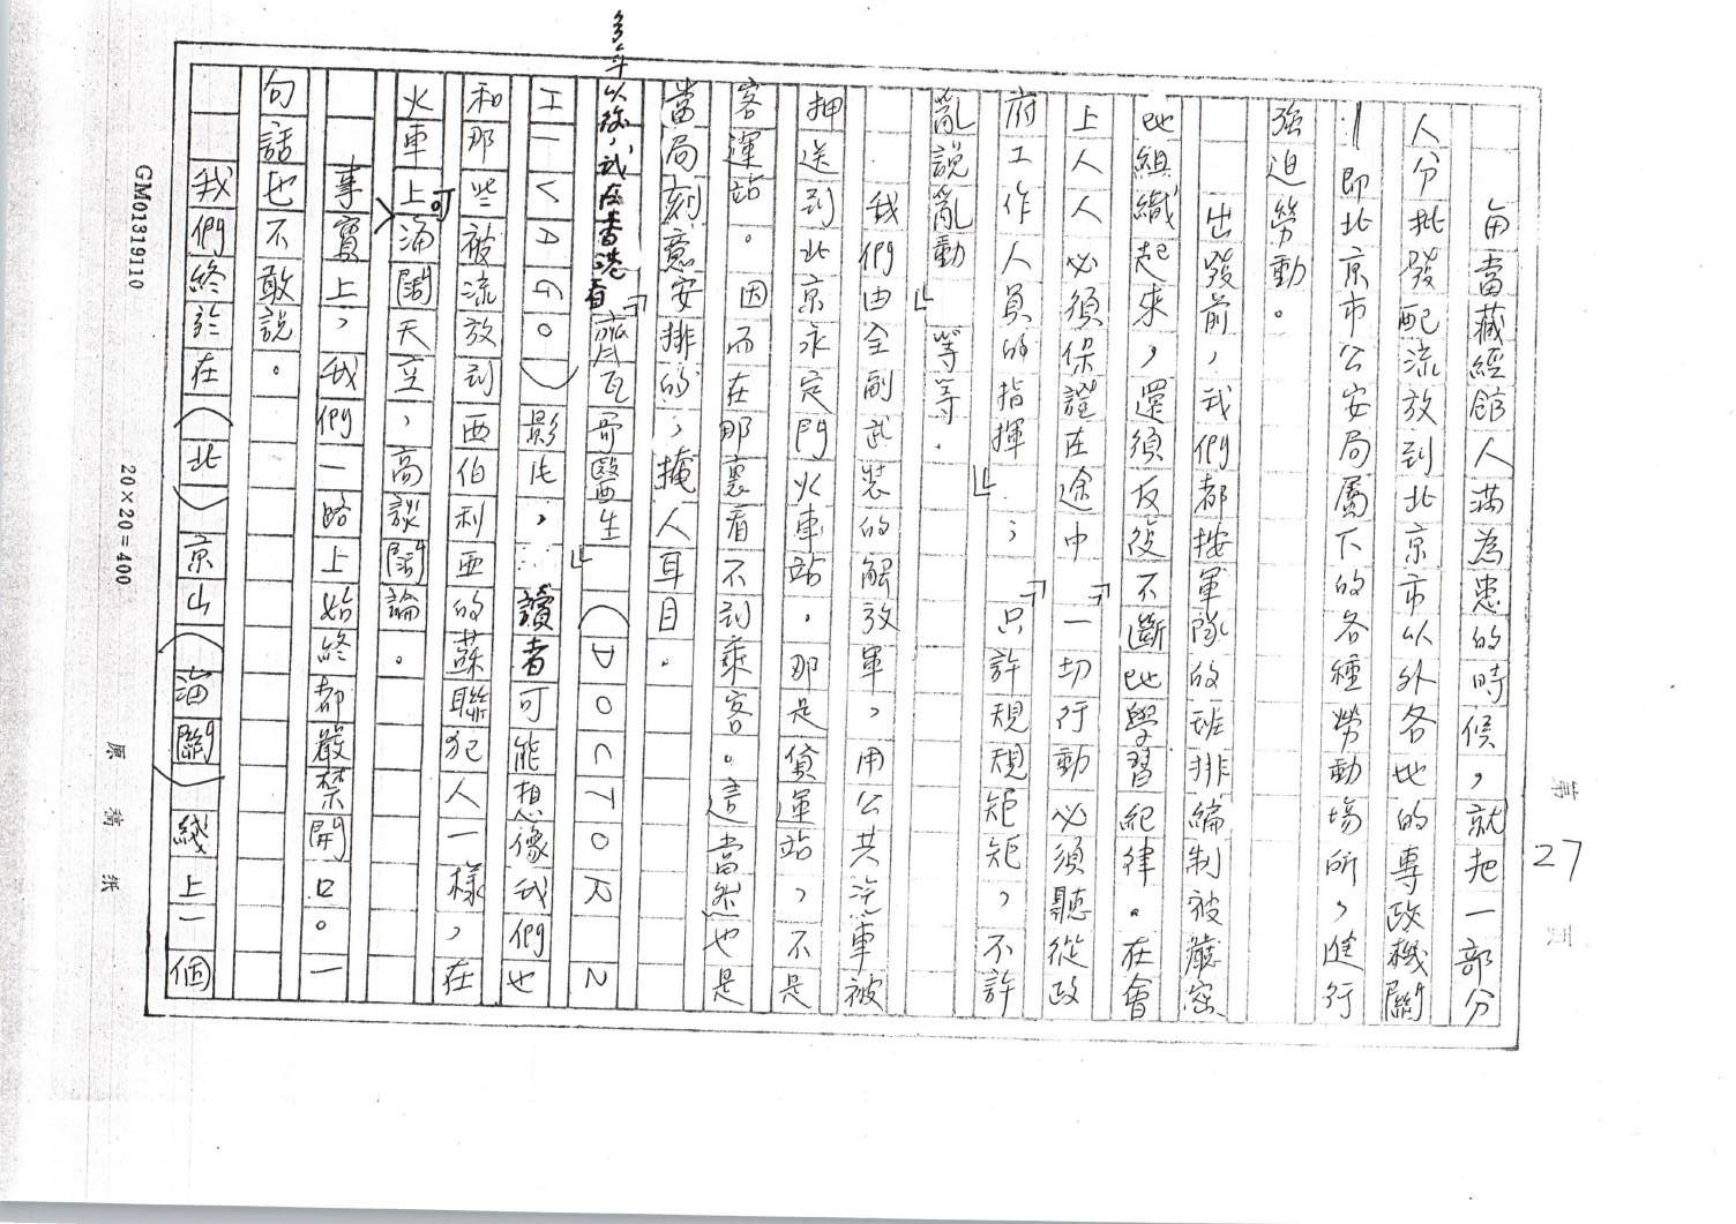 第27頁
每當藏經館人滿為患的時候，就把一部分
人分批發配流放到北京市以外各地的專政機關
｜即北京市公安局屬下的各種勞動場所，進行
強迫勞動。
出發前，我們都按軍隊的班排編制被嚴密
地組織起來，還須反復不斷地學習紀律。在會
上人人必須保證在途中「一切行動必須聽從政
府工作人員的指揮」；「只許規規矩矩，不許
亂說亂動」等等.
我們由全副武裝的解放軍，用公共汽車被
押送到北京永定門火車站．那是貨運站，不是
客運站。因而在那裏看不到乘客。這當然也是
當局刻意安排的，掩人耳目．
多年以後，我在香港看「齊瓦哥醫生」（DOCTOR Z
HIVAGO）影片，讀者可能想像我們也
和那些被流放到西伯利亞的蘇聯犯人一樣，在
火車上可海闊天空，高談闊論。
事實上，我們一路上始終都嚴禁開口。一
句話也不敢說。
我們終於在（北）京山（海關）綫上一個
GM01319110
20×20=400
原稿紙